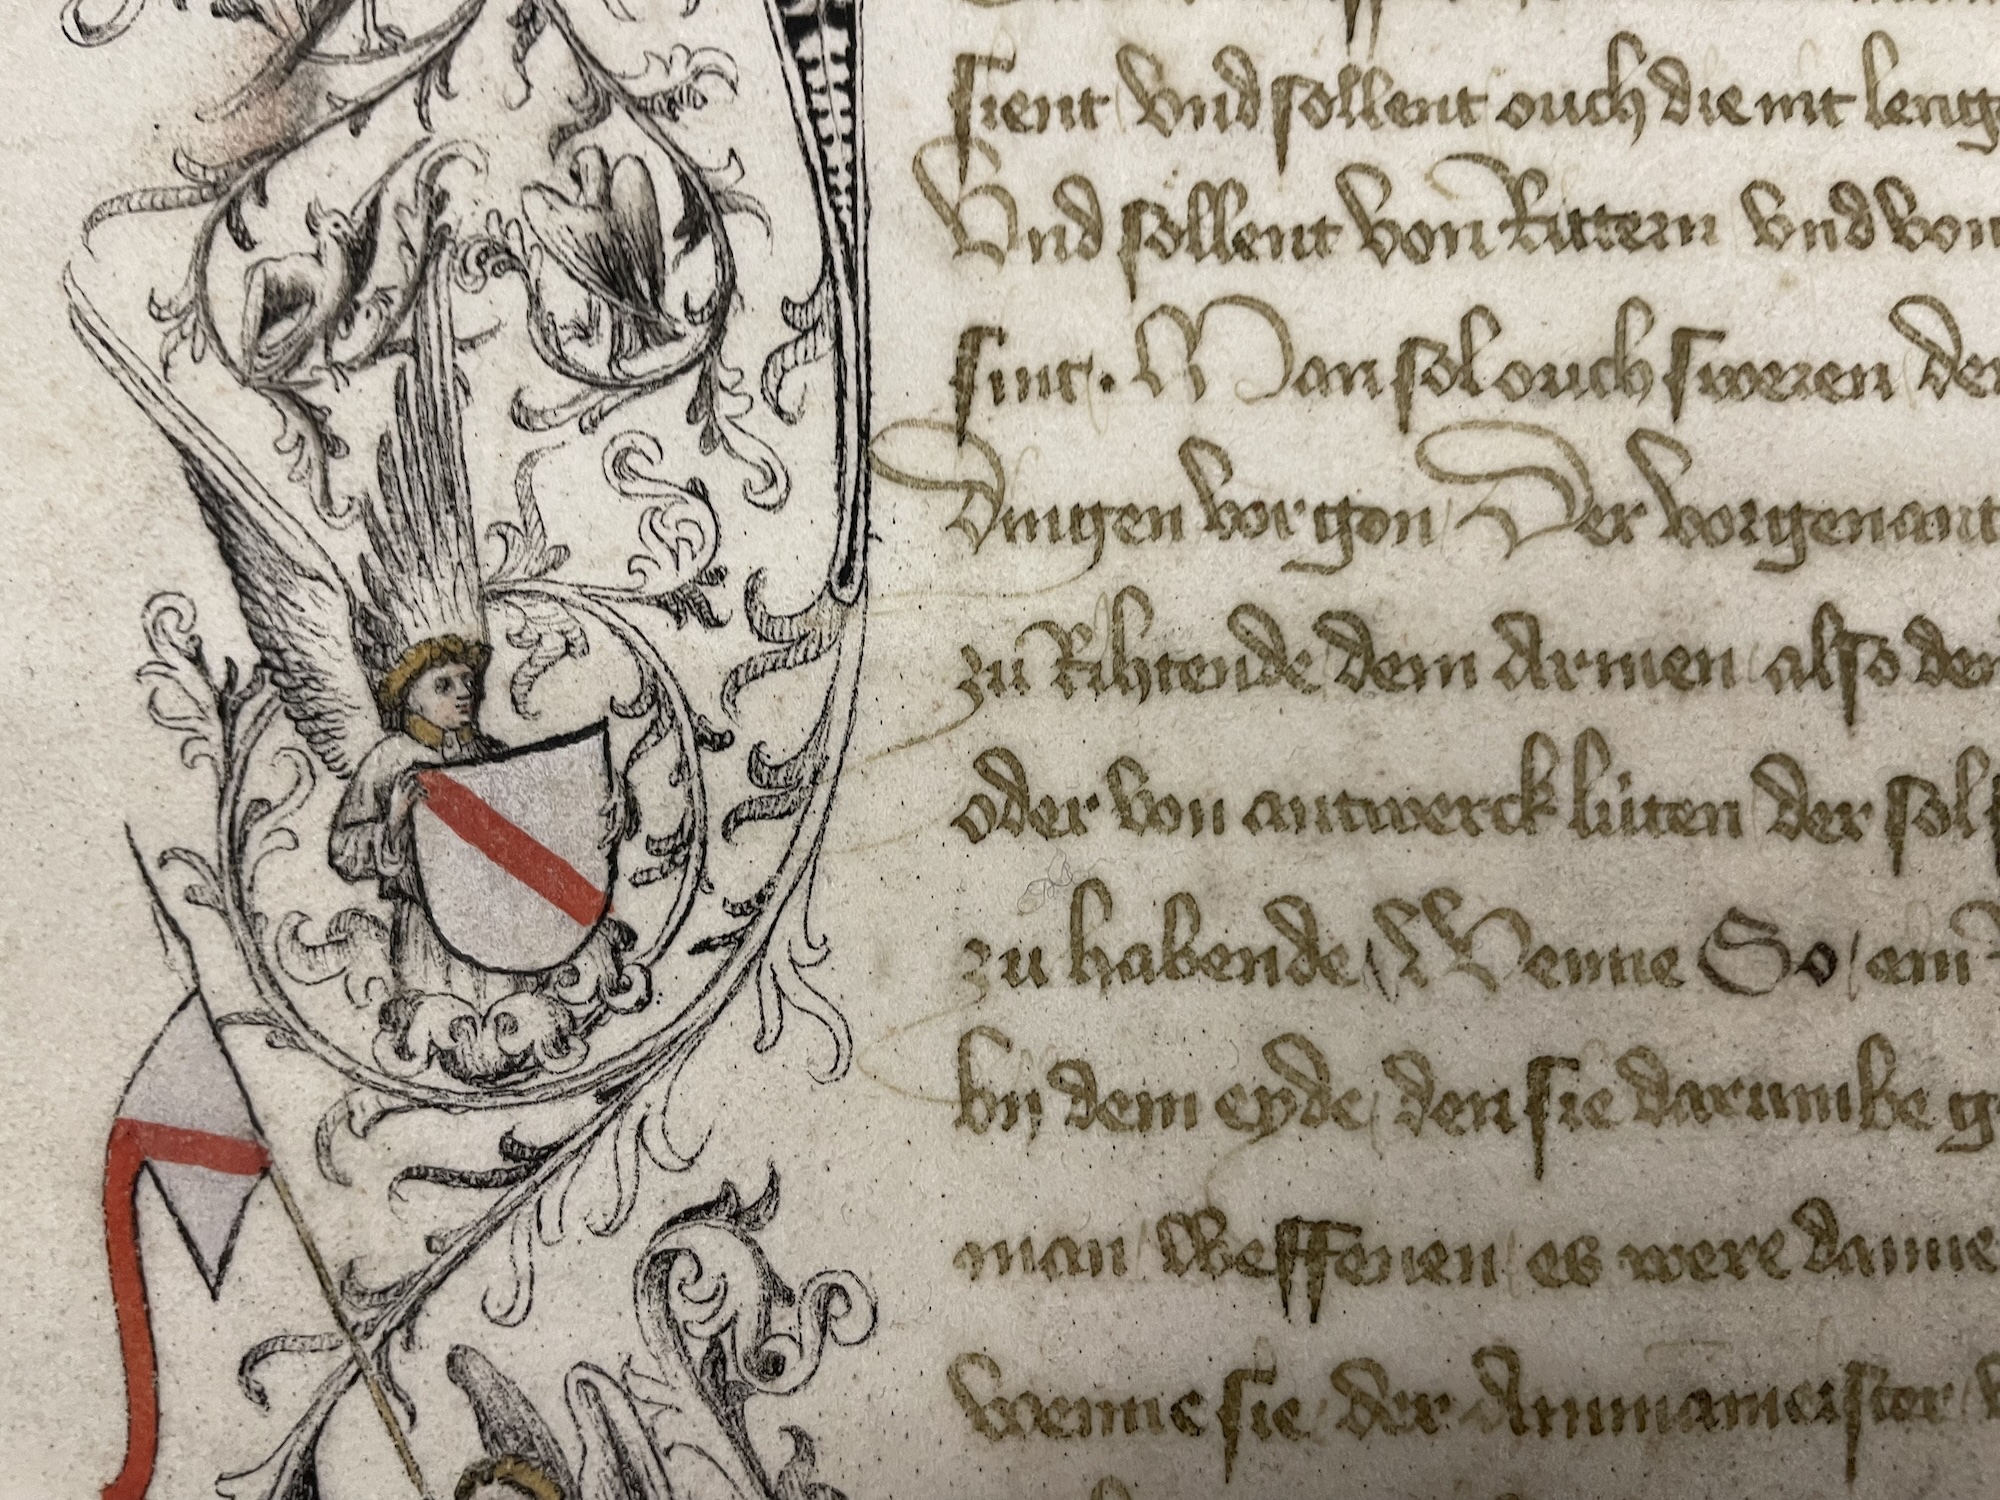 sient vnd sollent ouch die nit leng
Vnd sollent von Rittern vnd von
sint. Man sol ouch sweren den
Dingen vorgon Der vorgenant
zů Rihtende dem Armen also dem
oder von antwerck lüten der sol
zu habende Wenne So ein
by dem eyde den sie darumbe g
man Weffenen es were danne
wenne sie der Ammameister